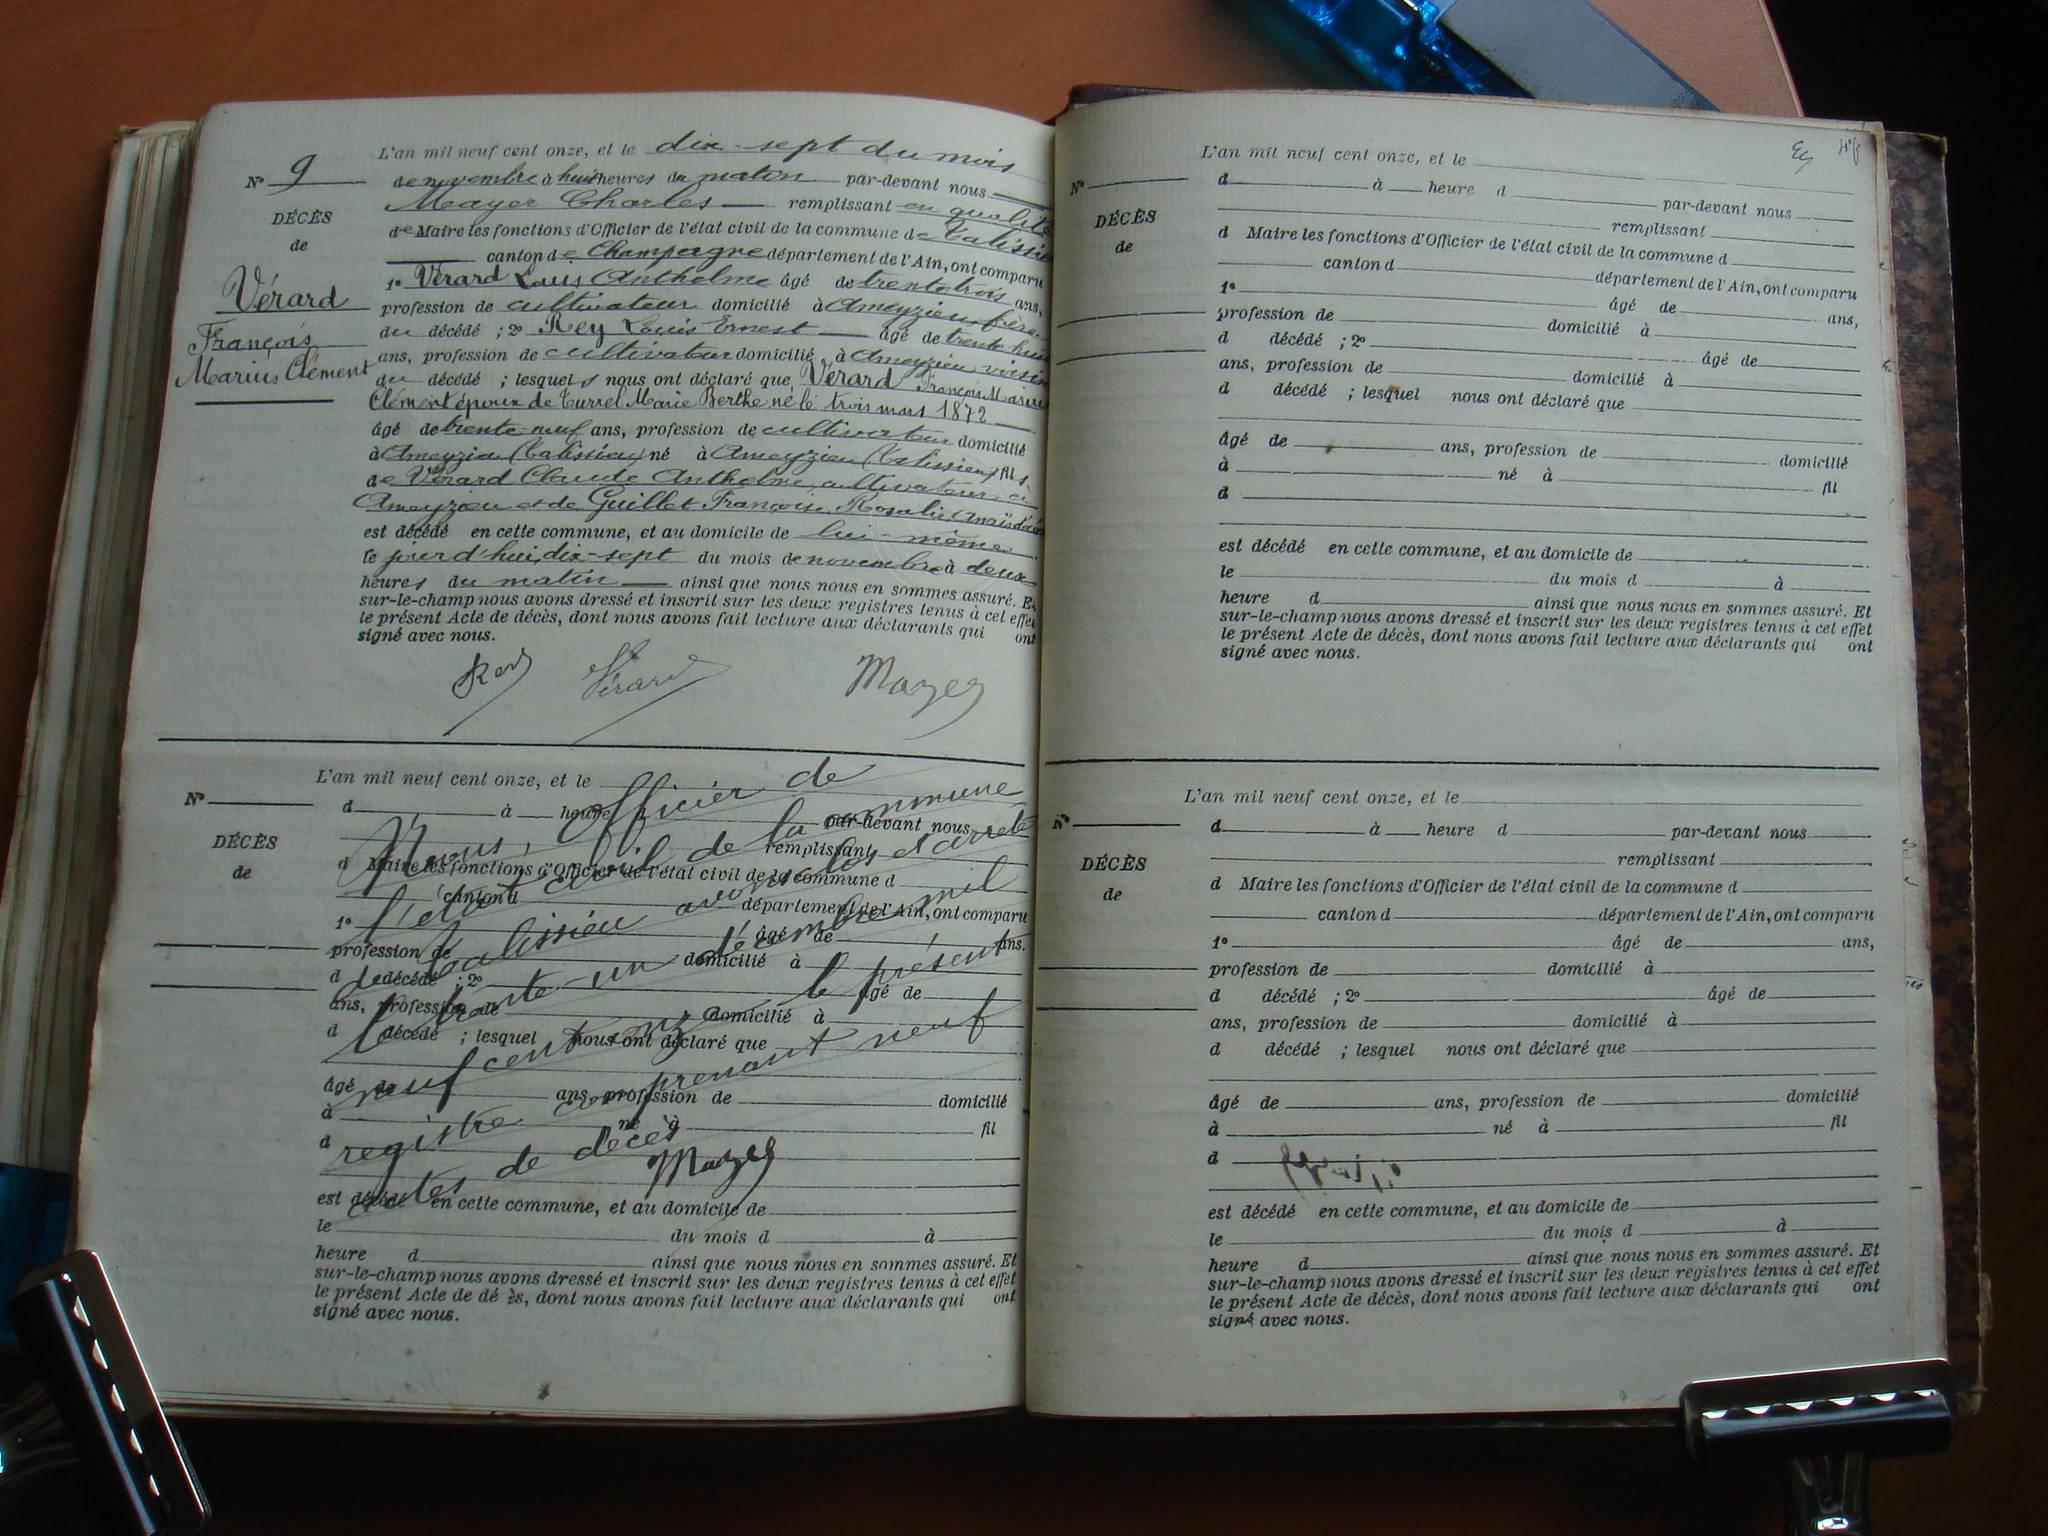 L'an mil neuf cent onze, et le dix-sept du mois
N° 9
de novembre à huit heures du matin par-devant nous
Mayer Charles remplissant en qualité
DÉCÈS
de Maire les fonctions d'Officier de l'état civil de la commune de Talissieu
de
canton de Champagne département de l'Ain, ont comparu
1° Vérard Louis Anthelme âgé de trente trois ans,
Vérard
profession de cultivateur domicilié à Ameyzieu frère
François
du décédé ; 2° Rey Louis Ernest âgé de trente huit
Marius Clément
ans, profession de cultivateur domicilié à Ameyzieu voisin
du décédé ; lesquels nous ont déclaré que Vérard François Marius
Clément époux de Turrel Marie Berthe, né le trois mars 1872
âgé de trente-neuf ans, profession de cultivateur domicilié
à Ameyzieu (Talissieu) né à Ameyzieu (Talissieu) fils
de Vérard Claude Anthelme, cultivateur à
Ameyzieu et de Guillet Françoise Rosalie Anaïs
est décédé en cette commune, et au domicile de lui-même
le jourd'hui, dix-sept du mois de novembre à deux
heures du matin ainsi que nous nous en sommes assuré. Et
sur-le-champ nous avons dressé et inscrit sur les deux registres tenus à cet effet
le présent Acte de décès, dont nous avons fait lecture aux déclarants qui ont
signé avec nous.
Rey Vérard Mayer
L'an mil neuf cent onze, et le
N°
d à heure
par-devant nous
remplissant
DÉCÈS
d Maire les fonctions d'Officier de l'état civil de la commune d
de
canton d département de l'Ain, ont comparu
1° âgé de ans.
profession de domicilié à
d décédé ; 2° âgé de
ans, profession de domicilié à
d décédé ; lesquel nous ont déclaré que
âgé de ans, profession de domicilié
à né à
d fil
est décédé en cette commune, et au domicile de
le du mois d à
heure d ainsi que nous nous en sommes assuré. Et
sur-le-champ nous avons dressé et inscrit sur les deux registres tenus à cet effet
le présent Acte de dé ès, dont nous avons fait lecture aux déclarants qui ont
signé avec nous.
Nous, officier de
l'état civil de la commune
de Talissieu avons clos et arrêté
le trente-un décembre mil
neuf cent onze le présent
registre comprenant neuf
actes de décès
Mayer
L'an mil neuf cent onze, et le
N°
d à heure d par-devant nous
DÉCÈS
remplissant
de
d Maire les fonctions d'Officier de l'état civil de la commune d
canton d département de l'Ain, ont comparu
1° âgé de ans,
profession de domicilié à
d décédé ; 2° âgé de
ans, profession de domicilié à
d décédé ; lesquel nous ont déclaré que
âgé de ans, profession de domicilié
à né à fil
d
est décédé en cette commune, et au domicile de
le du mois d à
heure d ainsi que nous nous en sommes assuré. Et
sur-le-champ nous avons dressé et inscrit sur les deux registres tenus à cet effet
le présent Acte de décès, dont nous avons fait lecture aux déclarants qui ont
signé avec nous.
L'an mil neuf cent onze, et le
N°
d à heure d par-devant nous
DÉCÈS
remplissant
de
d Maire les fonctions d'Officier de l'état civil de la commune d
canton d département de l'Ain, ont comparu
1° âgé de ans,
profession de domicilié à
d décédé ; 2° âgé de
ans, profession de domicilié à
d décédé ; lesquel nous ont déclaré que
âgé de ans, profession de domicilié
à né à fil
d
est décédé en cette commune, et au domicile de
le du mois d à
heure d ainsi que nous nous en sommes assuré. Et
sur-le-champ nous avons dressé et inscrit sur les deux registres tenus à cet effet
le présent Acte de décès, dont nous avons fait lecture aux déclarants qui ont
signé avec nous.